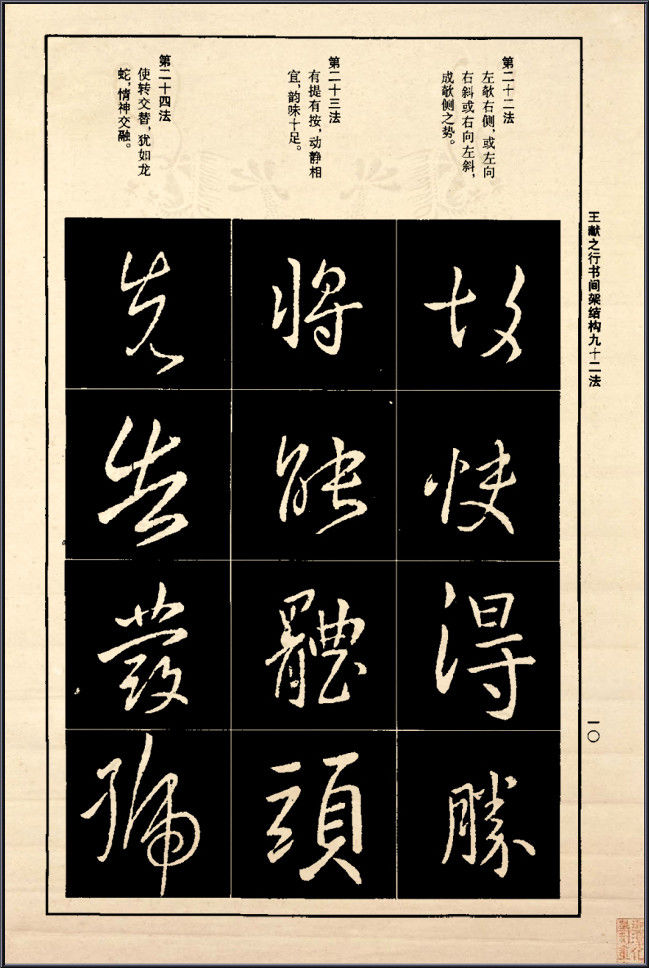 王献之行书间架结构九十二法
一〇
第二十二法
左欹右侧，或左向
右斜或右向左斜，
成欹侧之势。
故
快
得
勝
第二十三法
有提有按，动静相
宜，韵味十足。
將
能
體
頭
第二十四法
使转交替，犹如龙
蛇，情神交融。
先
告
發